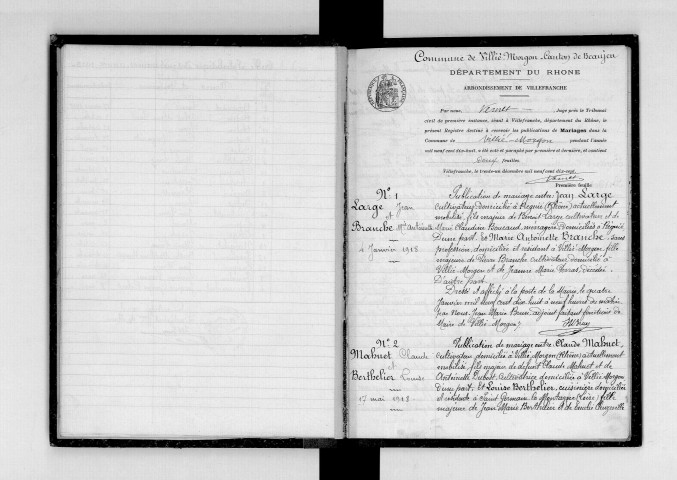 Commune de Villié-Morgon, Canton de Beaujeu
DÉPARTEMENT DU RHONE
ARRONDISSEMENT DE VILLEFRANCHE
Par nous, Juge près le Tribunal
civil de première instance, séant à Villefranche, département du Rhône, le
présent Registre destiné à recevoir les publications de Mariages dans la
Commune de Villié-Morgon pendant l'année
mil neuf cent dix-huit, a été coté et paraphé par première et dernière, et contient
Deux feuilles.
Villefranche, le trente-un décembre mil neuf cent dix-sept
Première feuille
N° 1
Large Jean
et
Branche Mie Antoinette
4 Janvier 1918
Publication de mariage entre Jean Large
cultivateur, domicilié à Régnié (Rhône) actuellement
mobilisé, fils majeur de Benoit Large cultivateur et de
Marie Claudine Boucaud, ménagère, domiciliés à Régnié
D'une part. Et Marie Antoinette Branche, sans
profession, domiciliée et résidant à Villié-Morgon, fille
majeure de Pierre Branche cultivateur, domicilié à
Villié-Morgon et de Jeanne Marie décédée.
D'autre part.
Dressé et affiché à la porte de la Mairie, le quatre
Janvier mil neuf cent dix huit à neuf heures du matin.
par Nous, Jean Marie Brun, adjoint faisant fonctions de
Maire de Villié-Morgon;
N° 2
Mahuet Claude
et
Berthelier Louise
17 mai 1918
Publication de mariage entre Claude Mahuet,
cultivateur domicilié à Villié-Morgon (Rhône) actuellement
mobilisé, fils majeur de défunt Claude Mahuet et de
Antoinette Dubost, cultivatrice domiciliée à Villié-Morgon
D'une part. Et Louise Berthelier, cuisinière domiciliée
et résidant à Saint Germain la Montagne (Loire) fille
majeure de Jean Marie Berthelier et de